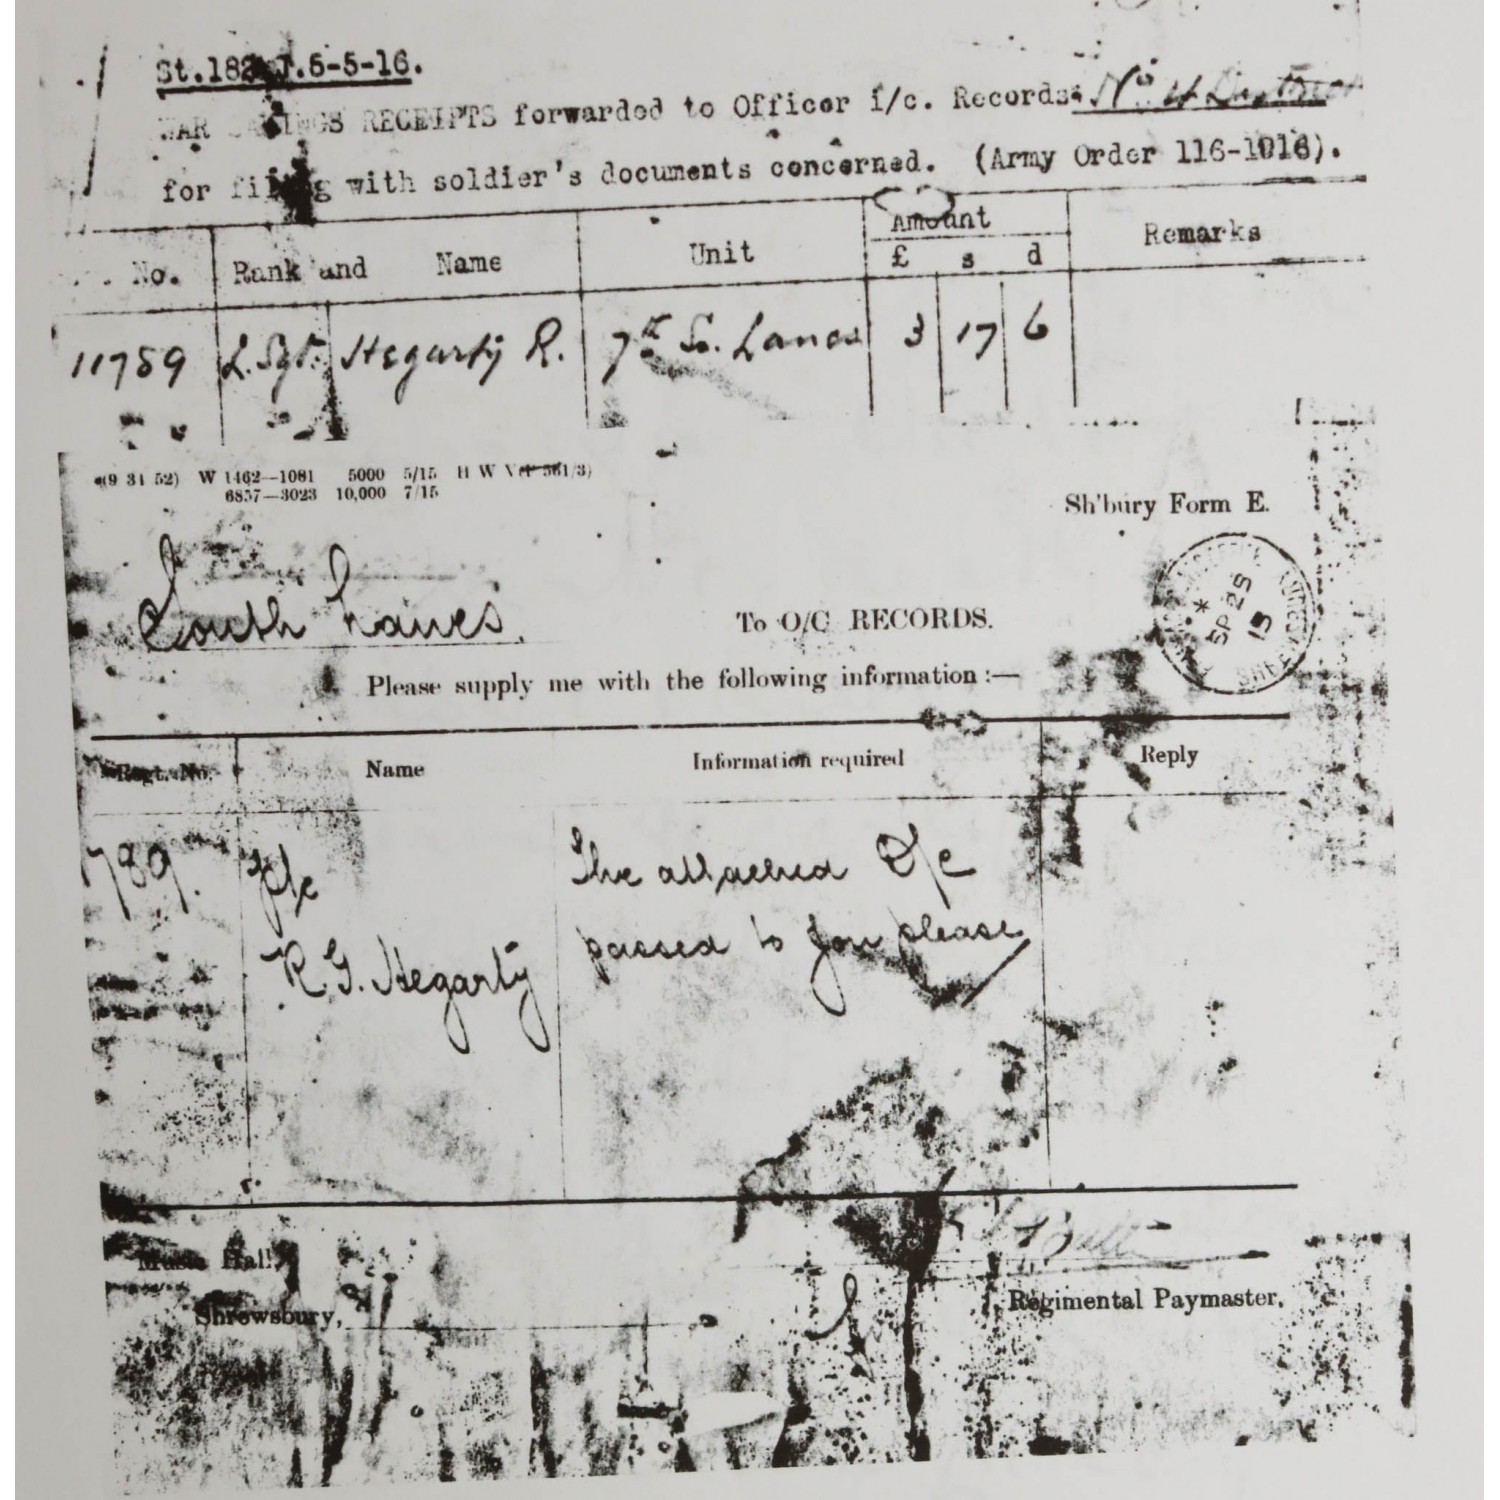 St.182 J.5-5-16.
WAR SAVINGS RECEIPTS forwarded to Officer i/c. Records. No 4 District
for filing with soldier's documents concerned. (Army Order 116-1916).
No. Rank and Name Unit Amount £ s d Remarks
11789 L. Sgt. Hegarty R. 7th So. Lancs 3 17 6
(9 31 52) W 1462—1081 5000 5/15 H W V
6857—3023 10,000 7/15
Sh'bury Form E.
South Lancs.
To O/C RECORDS.
SP 25
15
Please supply me with the following information :—
Regt. No. Name Information required Reply
789. Pte The attached D/C
R. G. Hegarty passed to you please
Music Hall,
Shrewsbury,
Regimental Paymaster.